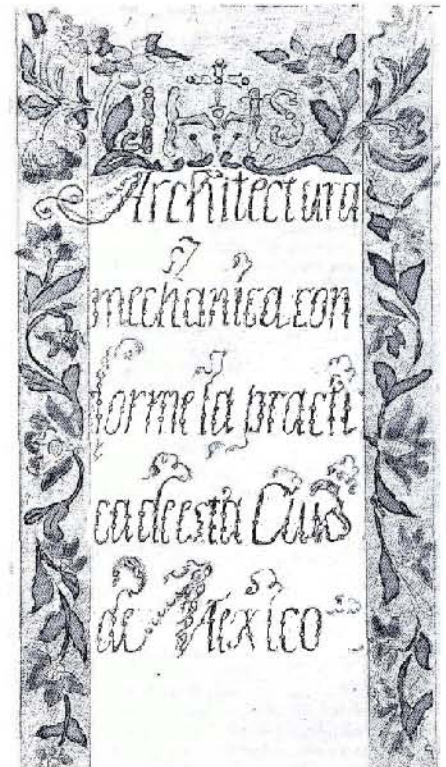 IHS
Architectura
mechanica con
forme la practi
ca de esta Ciud
de Mexico